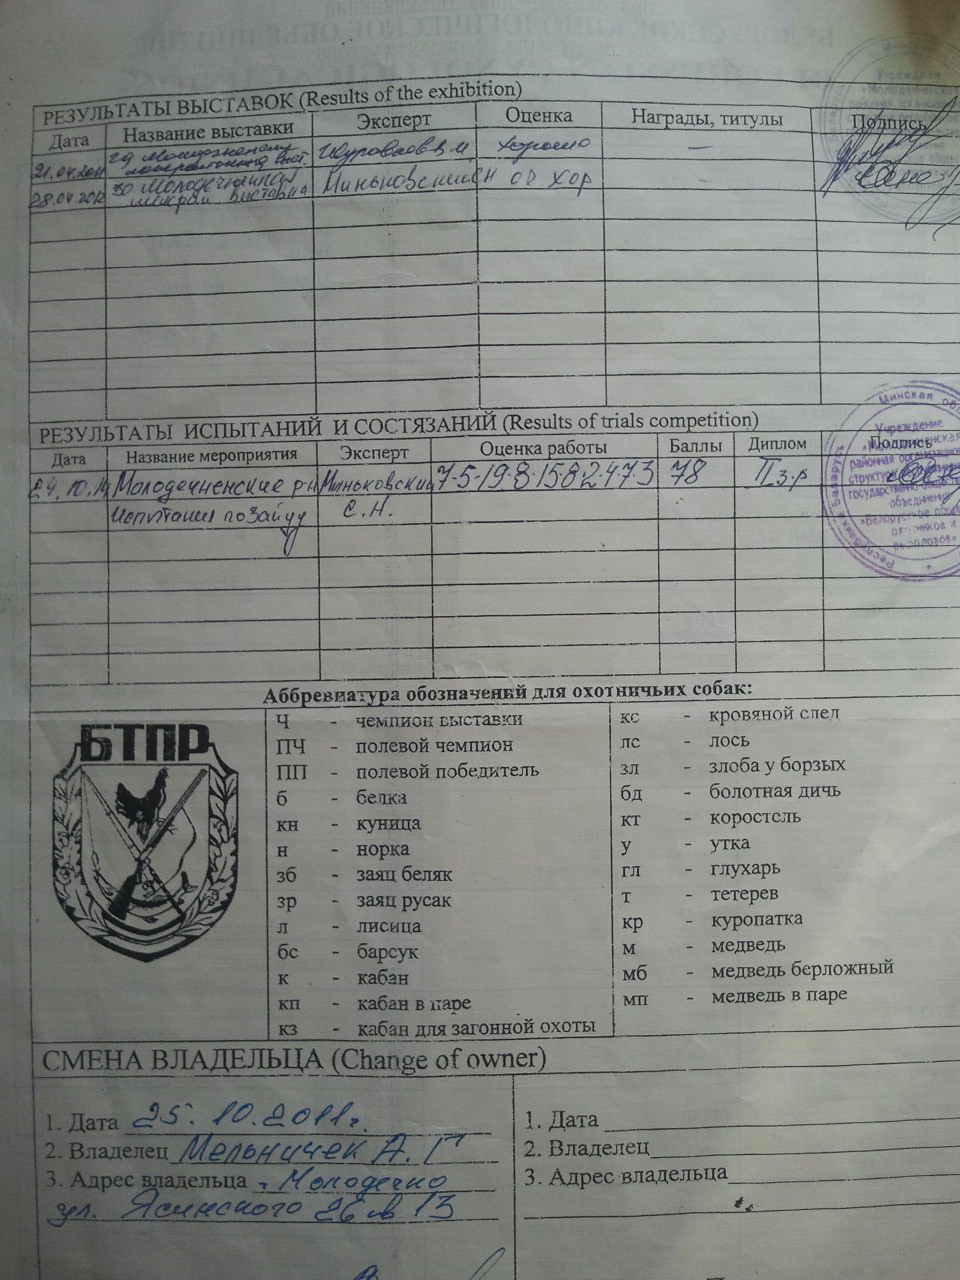 РЕЗУЛЬТАТЫ ВЫСТАВОК (Results of the exhibition)
Дата Название выставки Эксперт Оценка Награды, титулы Подпись
21.04.2011 хорошо —
28.04.2012 30 Молодечненская Миньковский С Н оч хор
выставка
РЕЗУЛЬТАТЫ ИСПЫТАНИЙ И СОСТЯЗАНИЙ (Results of trials competition)
Дата Название мероприятия Эксперт Оценка работы Баллы Диплом Подпись
24.10. Молодечненские р-н Миньковский 7-5-19-8-15 8 2-4-7-3 78 II з.р
Испытания по зайцу С.Н.
Минская
Учреждение
районная организационная
структура
государственно-общественного
объединения
«Белорусское общество
охотников и
рыболовов»
Аббревиатура обозначений для охотничьих собак:
БТПР
Ч - чемпион выставки
ПЧ - полевой чемпион
ПП - полевой победитель
б - белка
кн - куница
н - норка
зб - заяц беляк
зр - заяц русак
л - лисица
бс - барсук
к - кабан
кп - кабан в паре
кз - кабан для загонной охоты
кс - кровяной след
лс - лось
зл - злоба у борзых
бд - болотная дичь
кт - коростель
у - утка
гл - глухарь
т - тетерев
кр - куропатка
м - медведь
мб - медведь берложный
мп - медведь в паре
СМЕНА ВЛАДЕЛЬЦА (Change of owner)
1. Дата 25.10.2011г.
2. Владелец Мельничек А. Г
3. Адрес владельца г. Молодечно
ул. Ясинского 26 кв 13
1. Дата
2. Владелец
3. Адрес владельца